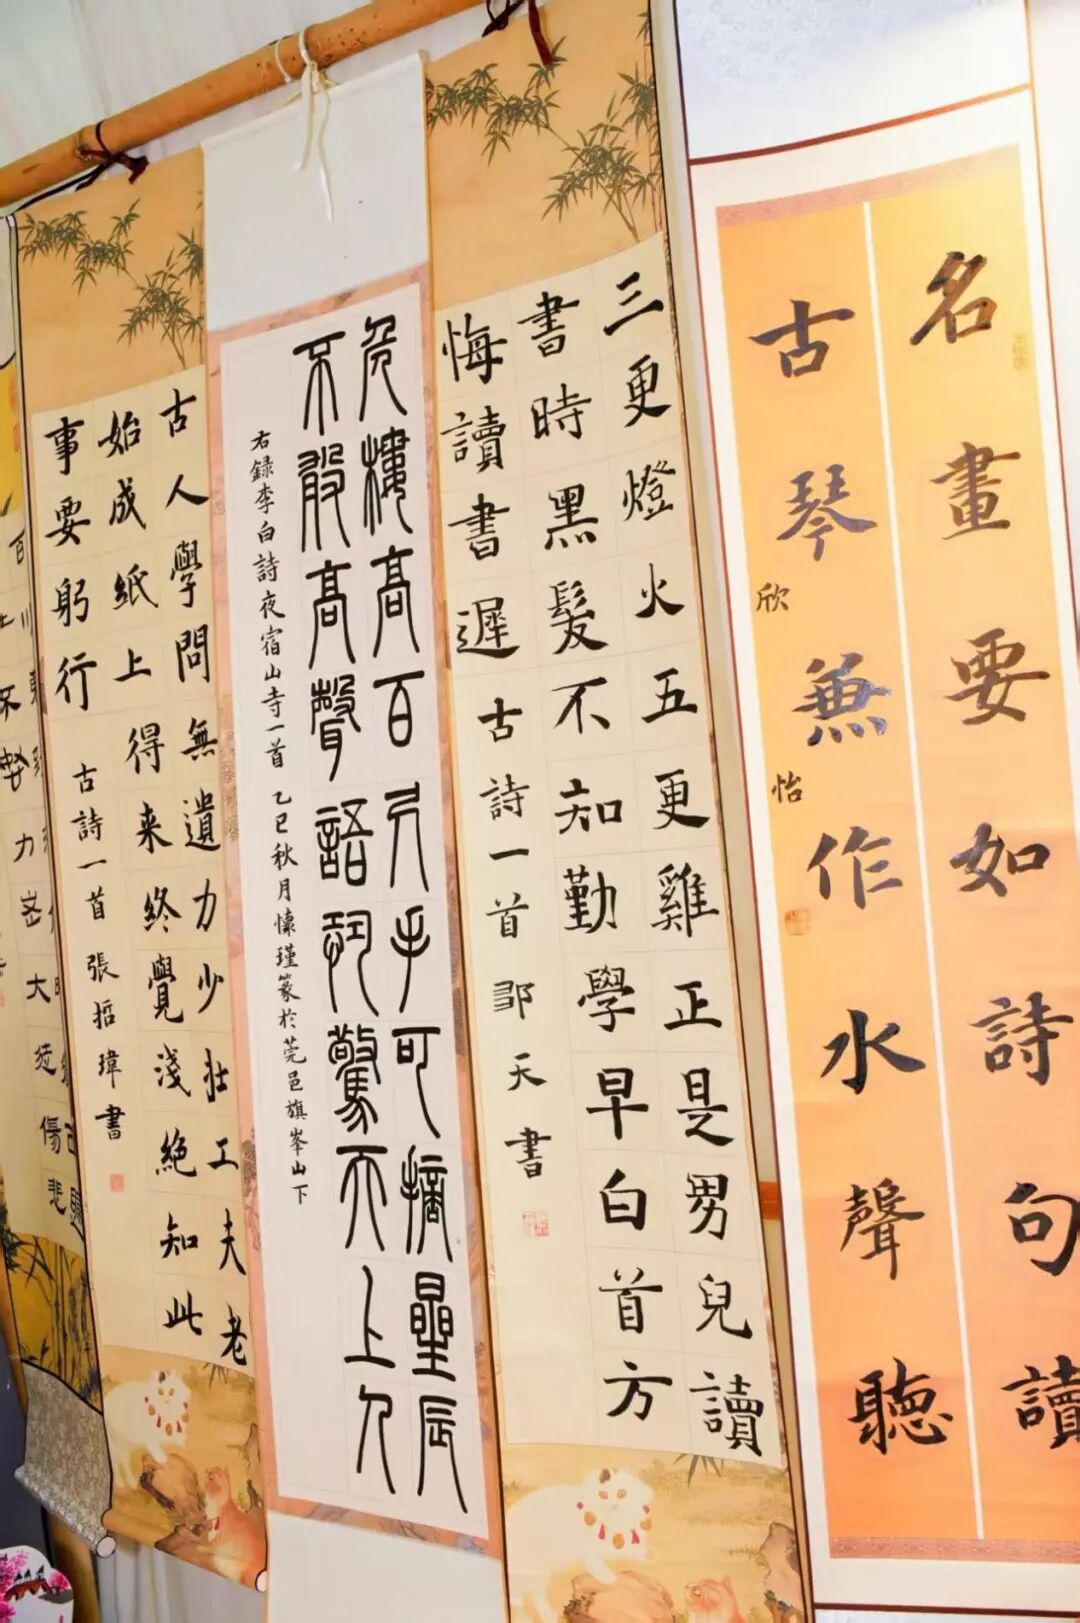 名畫要如詩句讀
古琴兼作水聲聽
欣怡
三更燈火五更雞正是男兒讀
書時黑髮不知勤學早白首方
悔讀書遲 古詩一首 邹天書
危樓高百尺手可摘星辰
不敢高聲語恐驚天上人
右録李白詩夜宿山寺一首 乙巳秋月懷瑾篆於莞邑旗峯山下
古人學問無遺力少壯工夫老
始成紙上得来終覺淺絕知此
事要躬行 古詩一首 張哲瑋書
百川東到
不努力老大徒傷悲